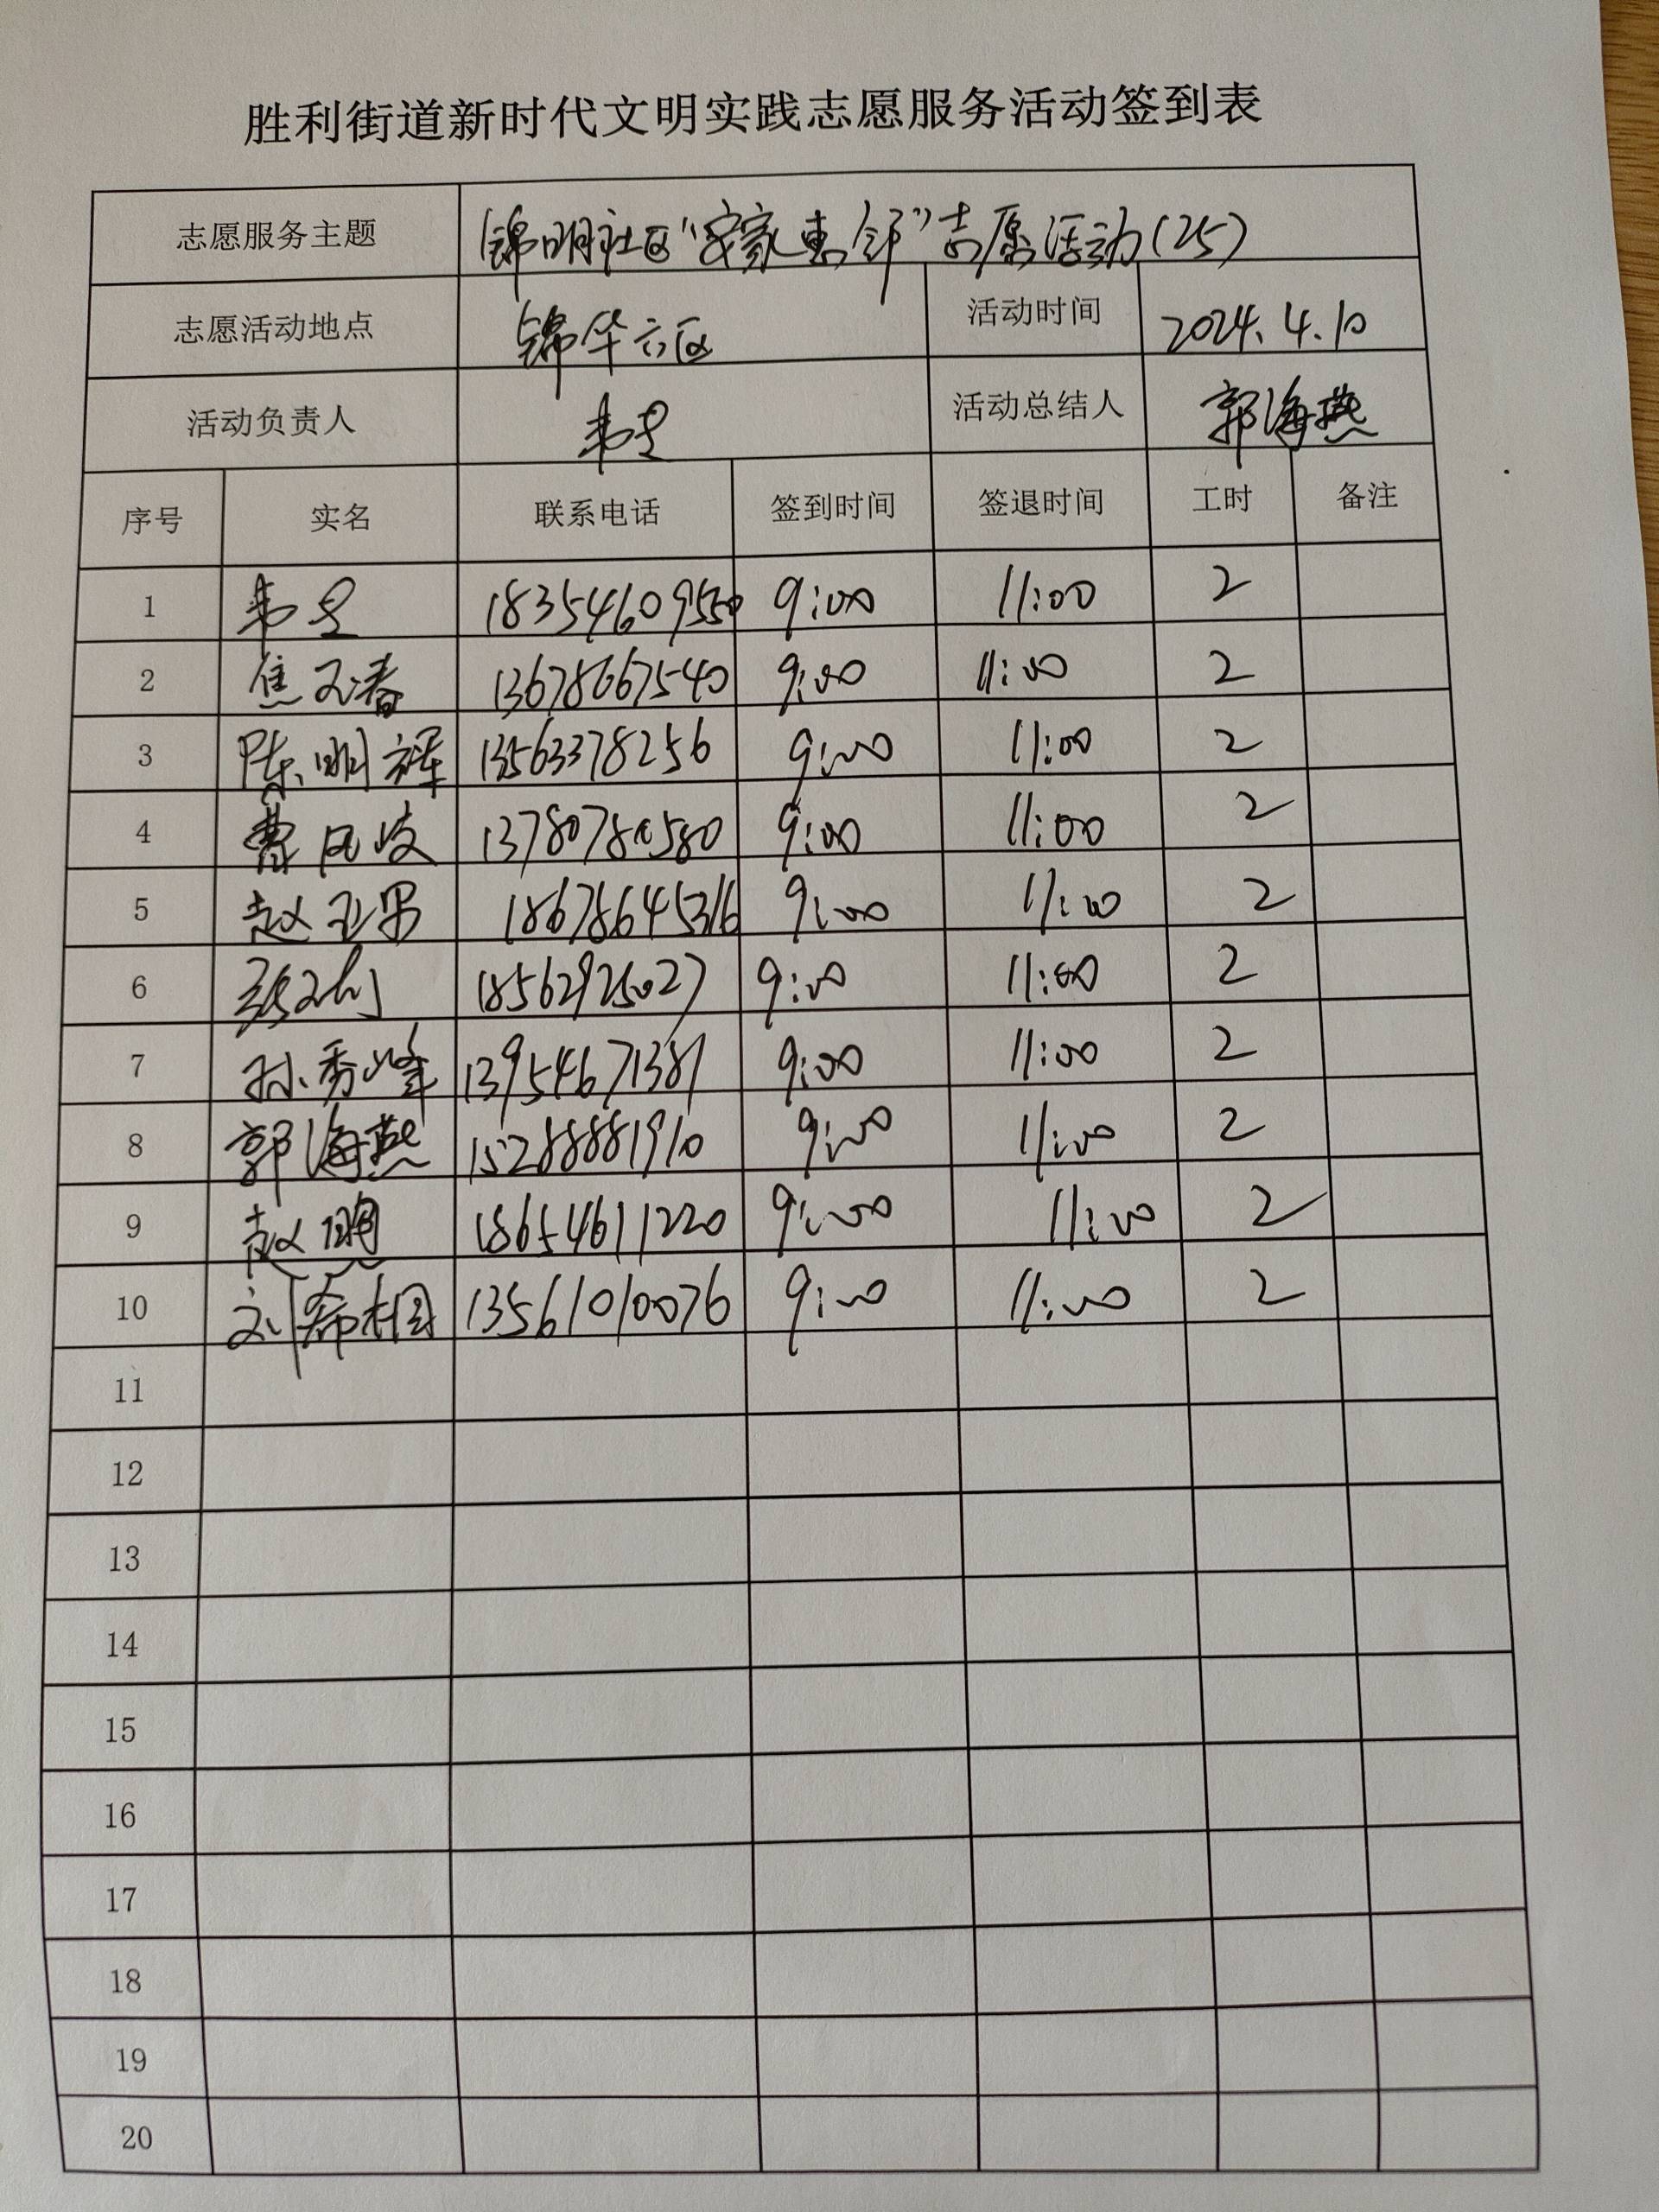 胜利街道新时代文明实践志愿服务活动签到表
志愿服务主题 锦明社区“安家惠邻”志愿活动(25)
志愿活动地点 锦华六区 活动时间 2024.4.10
活动负责人 活动总结人 郭海燕
序号 实名 联系电话 签到时间 签退时间 工时 备注
1 18354609550 9:00 11:00 2
2 焦玉春 13678667540 9:00 11:00 2
3 陈明辉 13563378256 9:00 11:00 2
4 曹风岐 13780780580 9:00 11:00 2
5 赵玉男 18678645316 9:00 11:00 2
6 18562925027 9:00 11:00 2
7 孙秀峰 13954671381 9:00 11:00 2
8 郭海燕 15288881910 9:00 11:00 2
9 赵鹏 18654611220 9:00 11:00 2
10 刘希相 13561010076 9:00 11:00 2
11
12
13
14
15
16
17
18
19
20